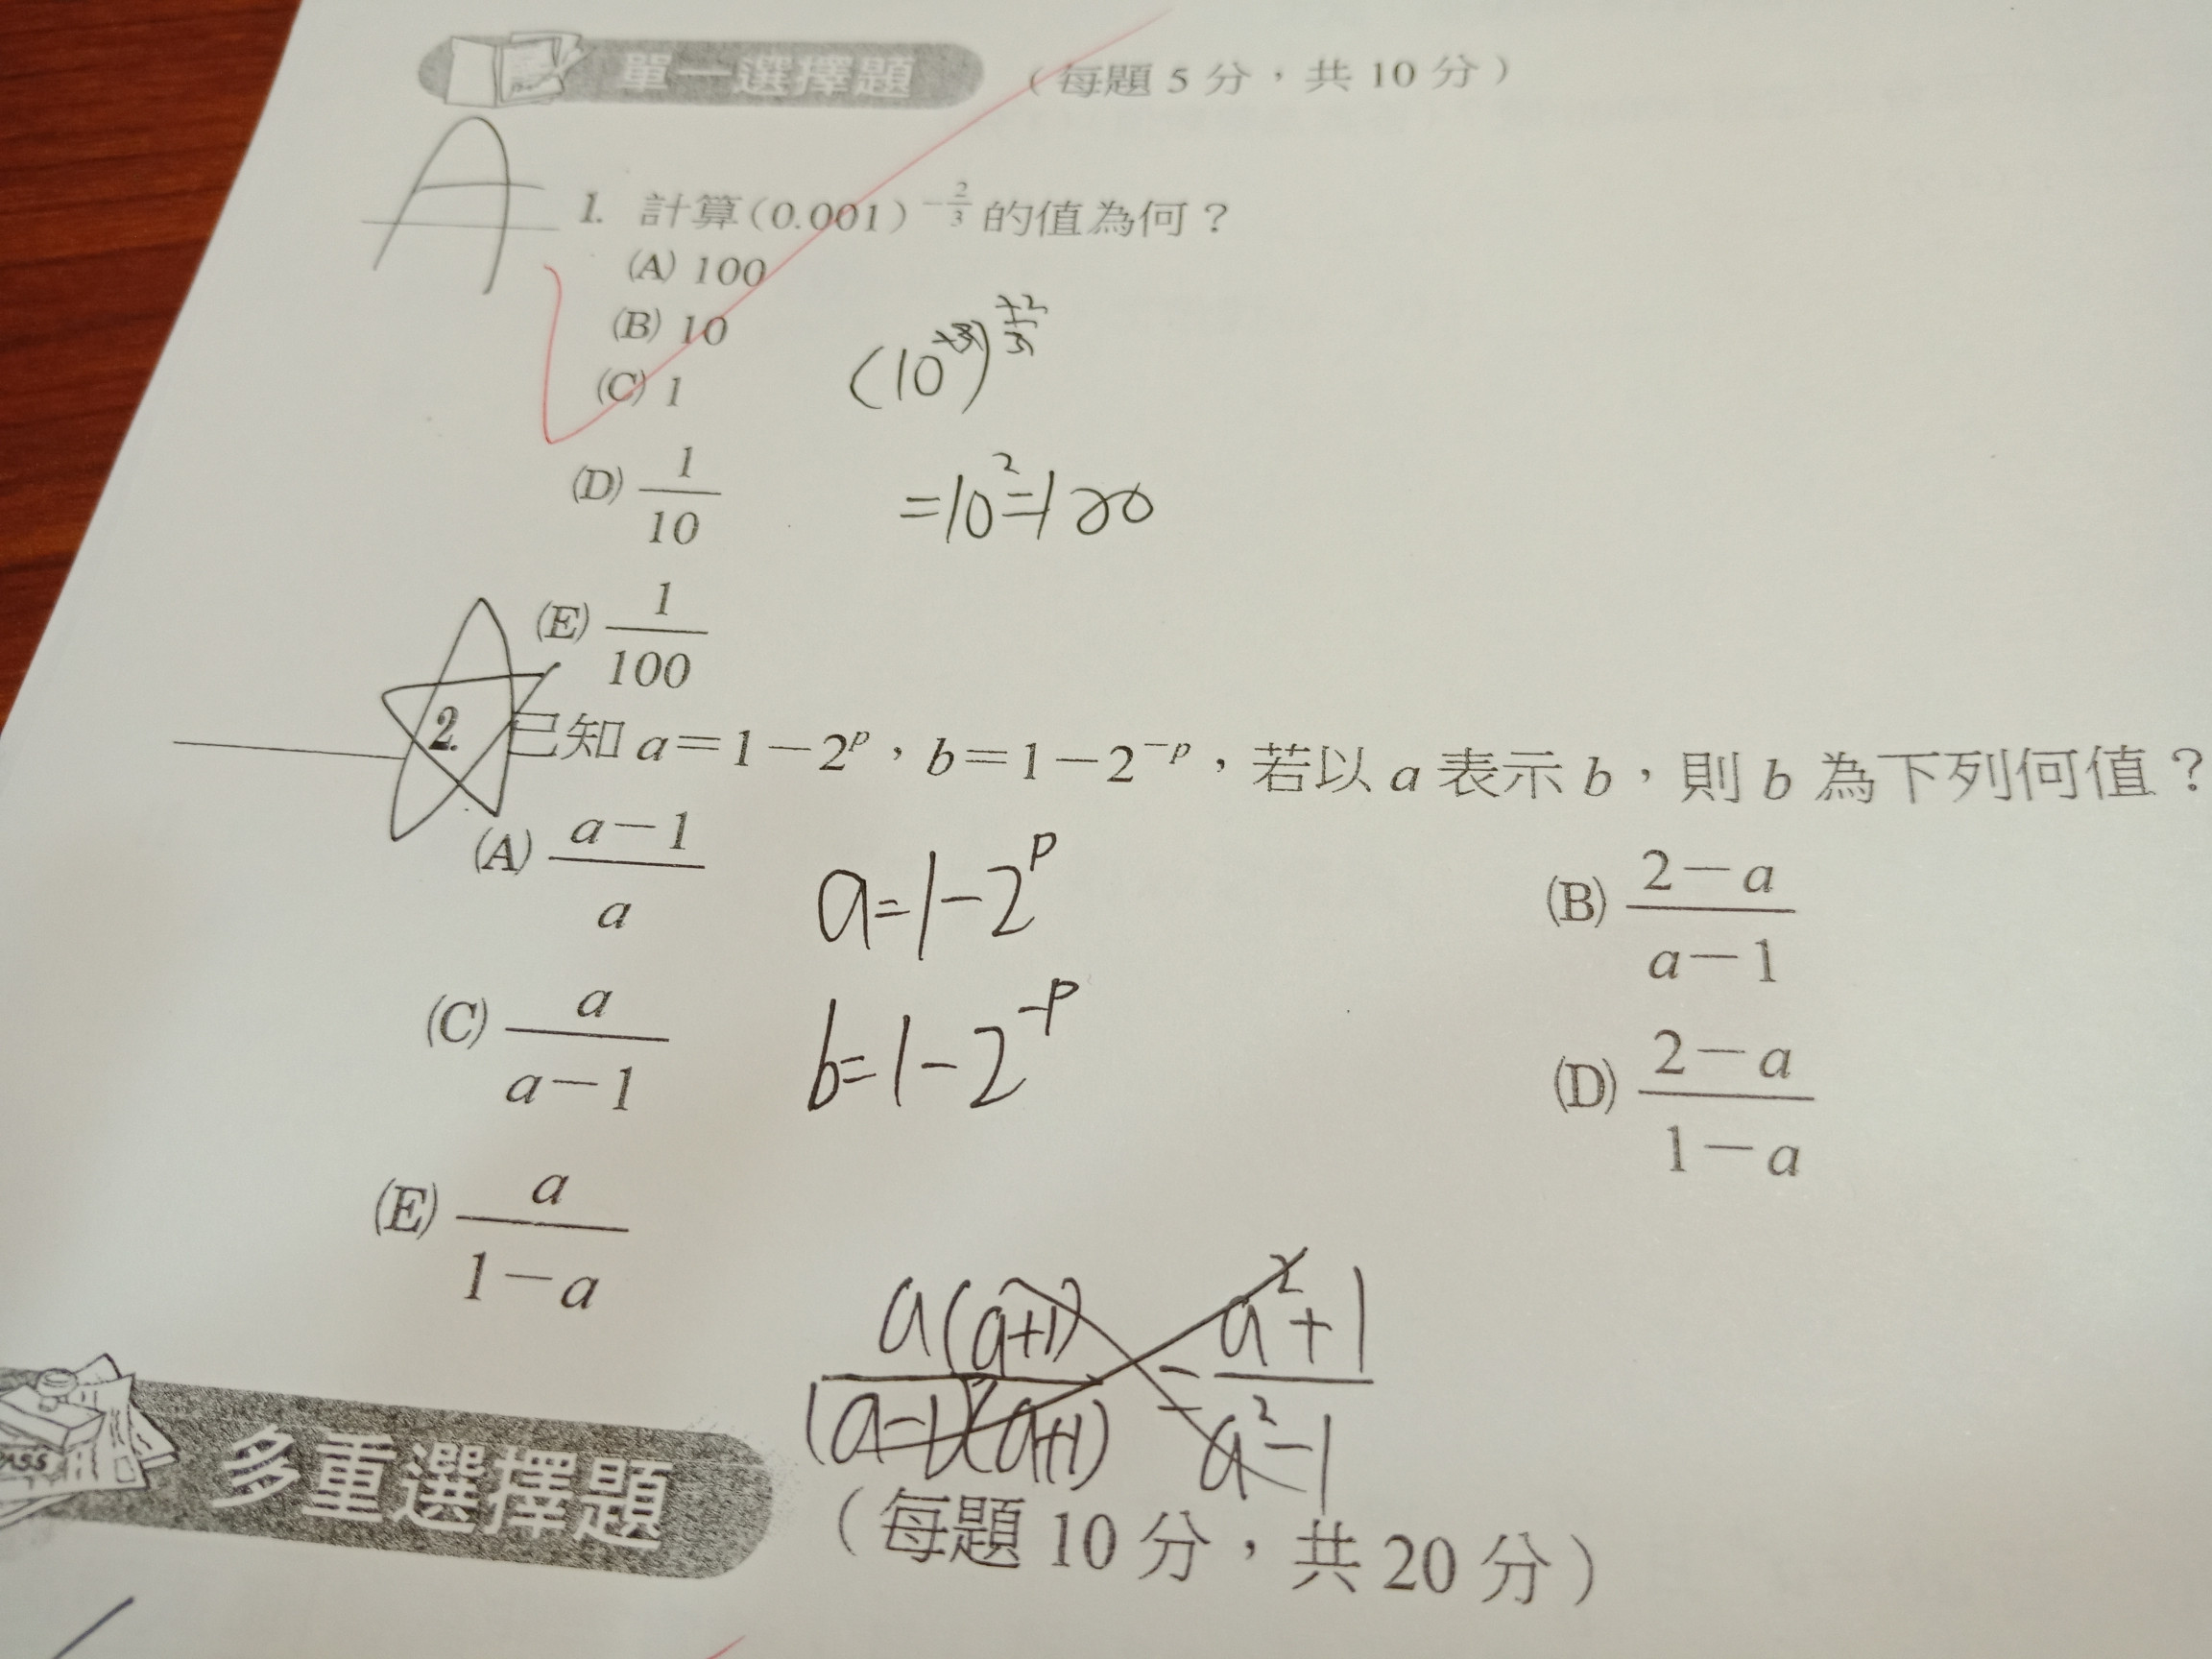 單一選擇題 (每題 5 分，共 10 分)
A
1. 計算(0.001)^{-\frac{2}{3}} 的值為何？
(A) 100
(B) 10
(C) 1
(D) \frac{1}{10}
(E) \frac{1}{100}
=10^2=100
2. 已知 a=1-2^p，b=1-2^{-p}，若以 a 表示 b，則 b 為下列何值？
(A) \frac{a-1}{a}
(B) \frac{2-a}{a-1}
(C) \frac{a}{a-1}
(D) \frac{2-a}{1-a}
(E) \frac{a}{1-a}
a=1-2^p
b=1-2^{-p}
\frac{a(a+1)}{(a-1)(a+1)} = \frac{a^2+1}{a^2-1}
多重選擇題 (每題 10 分，共 20 分)